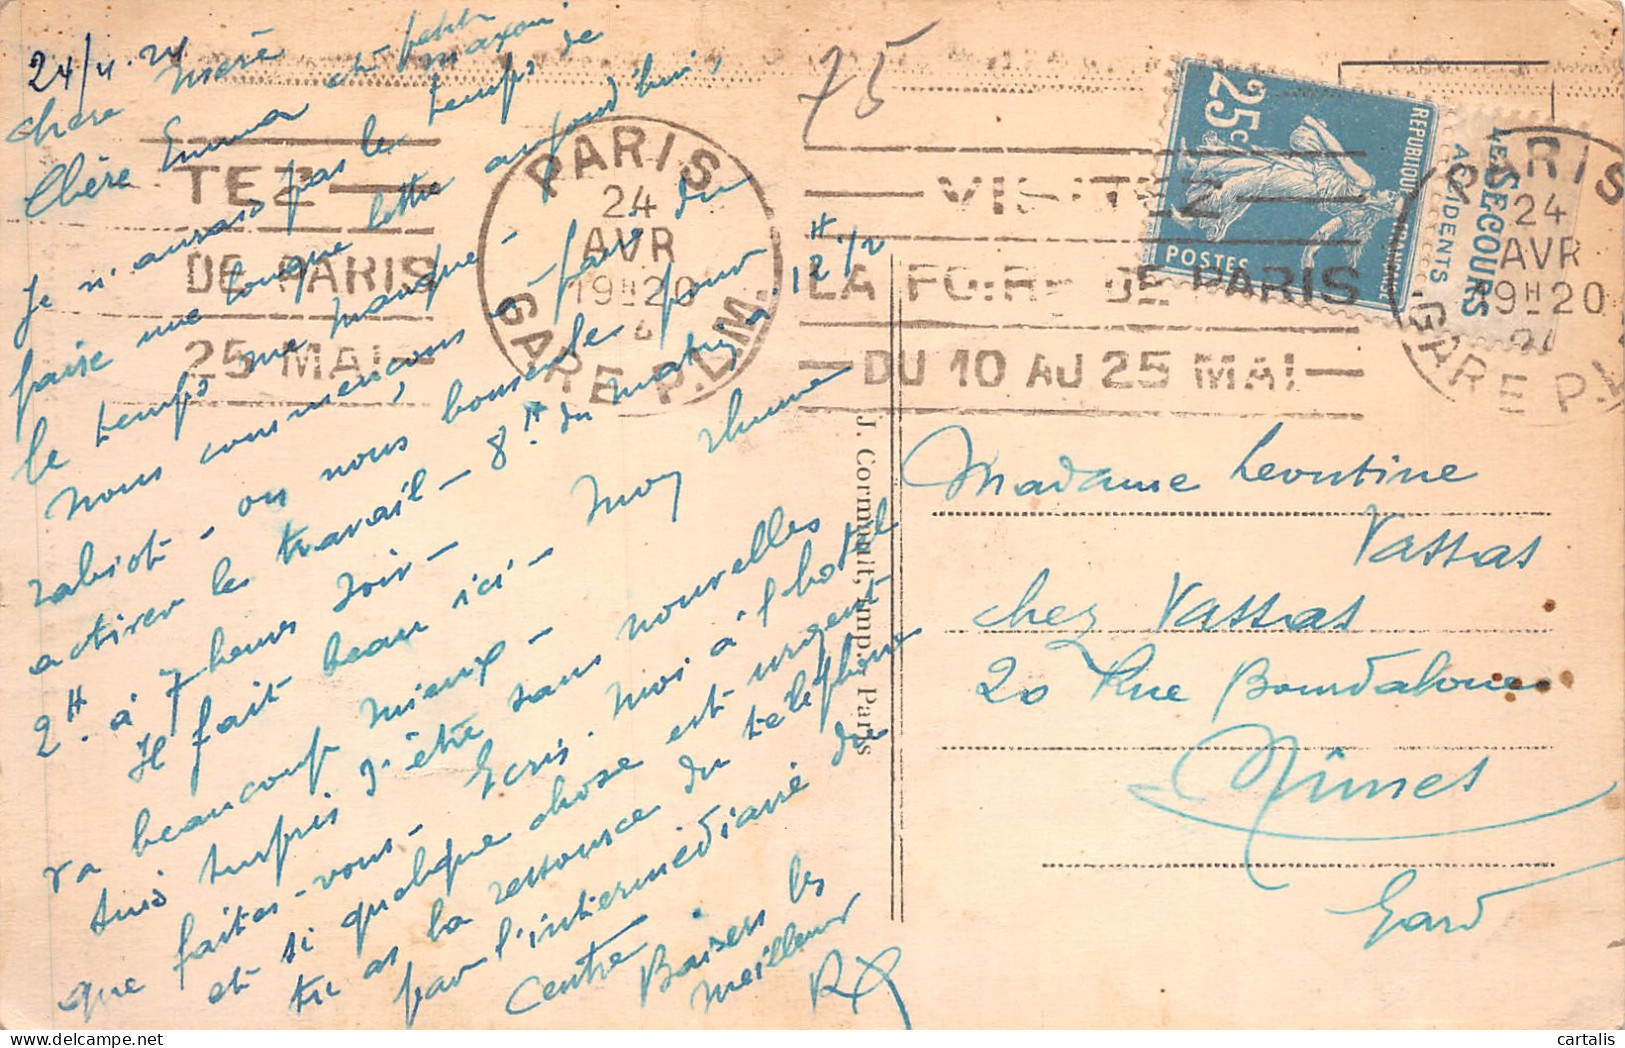 24/4.24
Chère Mère
Chère Emma et petit
Je n'aurai pas le temps de
faire une longue lettre aujourd'hui,
le temps me manque -
Nous commençons à faire du
rabiot - on nous bouscule pour
activer le travail - 8 H. du matin à 12 H 1/2
2 H. à 7 heures soir -
Il fait beau ici - Mon rhume
va beaucoup mieux -
Suis surpris d'être sans nouvelles
que faites-vous - Ecris moi à l'hotel
et si quelque chose est urgent
tu as la ressource du téléphone
par l'intermédiaire du
Centre. Baisers les
meilleurs
75
TEZ
DE PARIS
25 MAI
PARIS
24
AVR
19H20
GARE P.L.M.
VISITEZ
LA FOIRE DE PARIS
DU 10 AU 25 MAI
25c
REPUBLIQUE FRANÇAISE
POSTES
LE SECOURS
ACCIDENTS
PARIS
24
AVR
19H20
24
GARE P.L.
J. Cormault, Imp., Paris
Madame Leontine
Vassas
chez Vassas
20 Rue Bourdaloue
Nîmes
Gard
cartalis